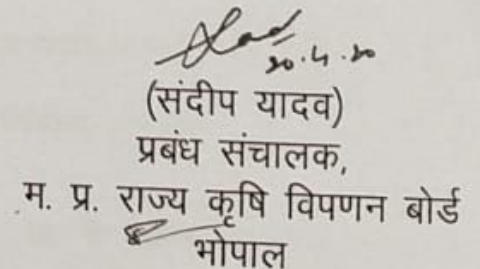 20.4.20
(संदीप यादव)
प्रबंध संचालक,
म. प्र. राज्य कृषि विपणन बोर्ड
भोपाल